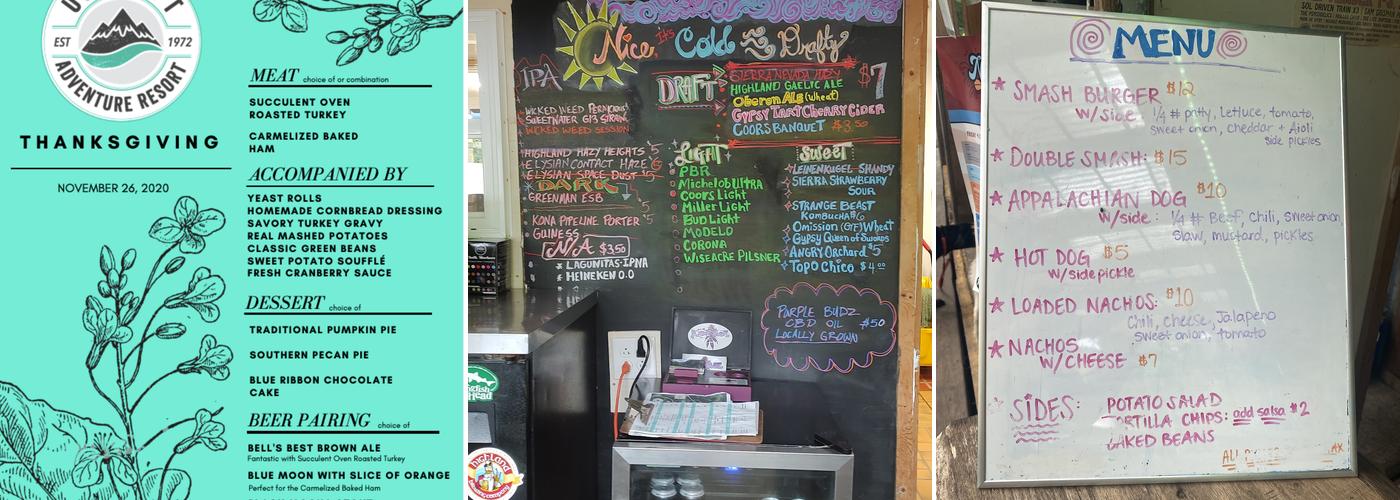 EST 1972
ADVENTURE RESORT
THANKSGIVING
NOVEMBER 26, 2020
MEAT choice of or combination
SUCCULENT OVEN
ROASTED TURKEY
CARMELIZED BAKED
HAM
ACCOMPANIED BY
YEAST ROLLS
HOMEMADE CORNBREAD DRESSING
SAVORY TURKEY GRAVY
REAL MASHED POTATOES
CLASSIC GREEN BEANS
SWEET POTATO SOUFFLÉ
FRESH CRANBERRY SAUCE
DESSERT choice of
TRADITIONAL PUMPKIN PIE
SOUTHERN PECAN PIE
BLUE RIBBON CHOCOLATE
CAKE
BEER PAIRING choice of
BELL'S BEST BROWN ALE
Fantastic with Succulent Oven Roasted Turkey
BLUE MOON WITH SLICE OF ORANGE
Perfect for the Carmelized Baked Ham
Nice, it's Cold & Drafty
IPA
WICKED WEED PERNICIOUS
SWEETWATER G13 STRAIN
WICKED WEED SESSION
HIGHLAND HAZY HEIGHTS 5
ELYSIAN CONTACT HAZE 6
ELYSIAN SPACE DUST 5
DARK
GREENMAN ESB
KONA PIPELINE PORTER 5
GUINESS
N/A $3.50
LAGUNITAS-IPNA
HEINEKEN 0.0
DRAFT $7
SIERRA NEVADA HAZY
HIGHLAND GAELIC ALE
Oberon ALE (wheat)
GYPSY TART CHERRY CIDER
COORS BANQUET $3.50
Light
PBR
Michelob ULTRA
Coors Light
Miller Light
Bud Light
MODELO
CORONA
WISEACRE PILSNER
Sweet
LEINENKUGEL SHANDY
SIERRA STRAWBERRY
SOUR
STRANGE BEAST
KOMBUCHA $6
Omission (GF) Wheat
Gypsy Queen of Swords
ANGRY ORCHARD $5
TOPO CHICO $4.00
PURPLE BUDZ
CBD OIL $50
LOCALLY GROWN
Head
MENU
SMASH BURGER $12
W/side 1/4 # patty, Lettuce, tomato,
sweet onion, cheddar + Aioli
side pickles
DOUBLE SMASH: $15
APPALACHIAN DOG $10
w/side: 1/4 # Beef, Chili, Sweet onion
Slaw, mustard, pickles
HOT DOG $5
W/side pickle
LOADED NACHOS: $10
Chili, cheese, Jalapeno
Sweet onion, tomato
NACHOS
W/CHEESE $7
SIDES: POTATO SALAD
TORTILLA CHIPS: add salsa $2
BAKED BEANS
ALL